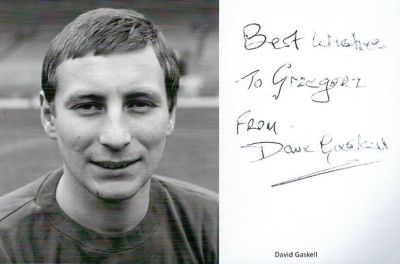 Best Wishes
To Grzegorz
From
Dave Gaskell
David Gaskell